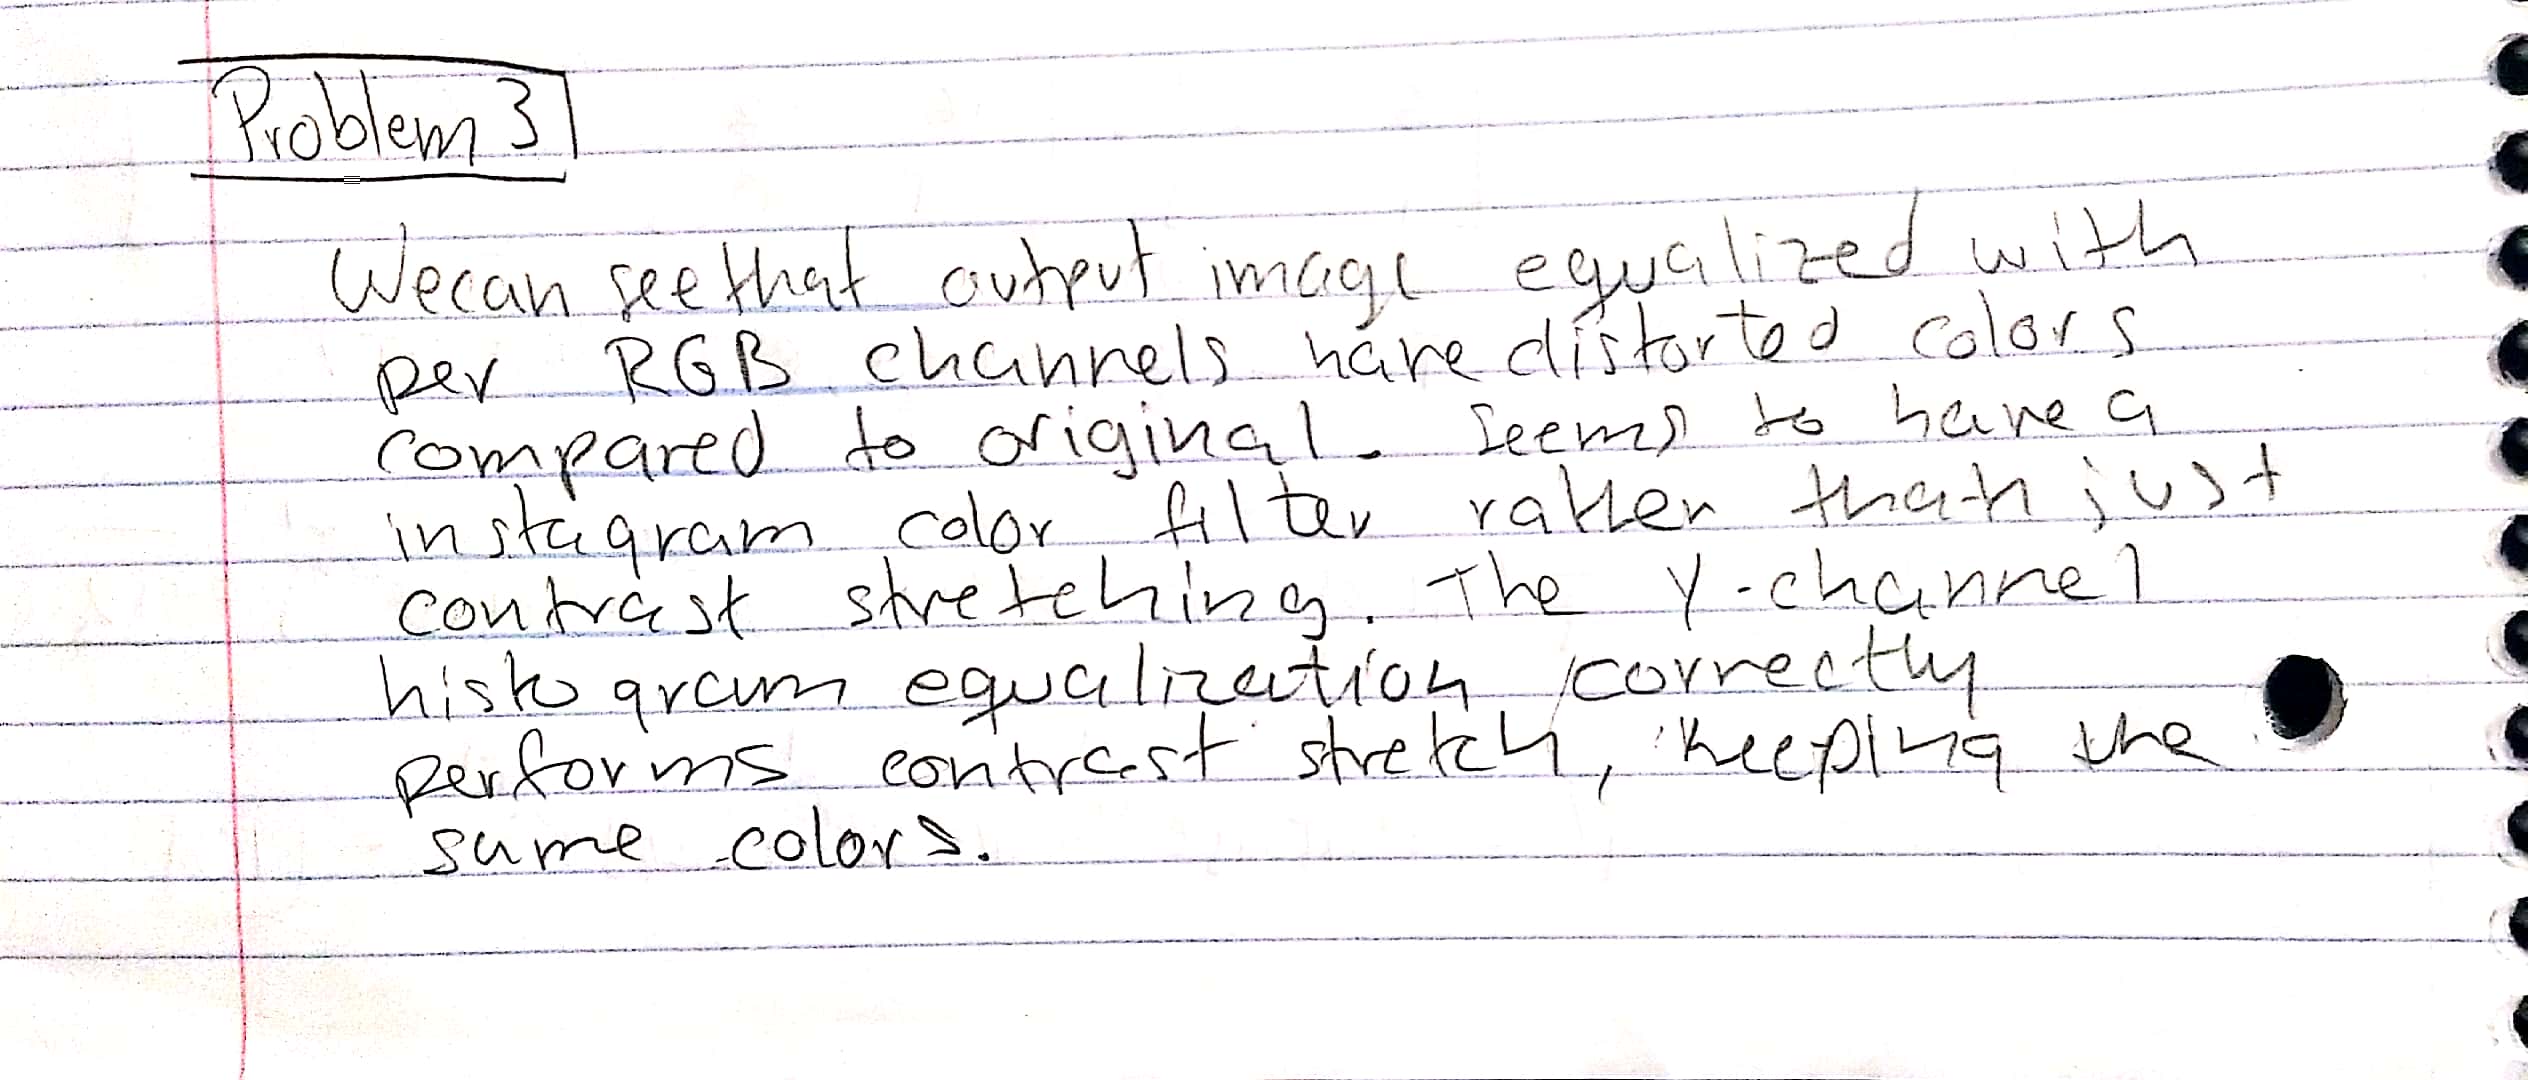 Problem 3
We can see that output image equalized with
per RGB channels have distorted colors
compared to original. Seems to have a
instagram color filter rather than just
contrast stretching. The Y-channel
histogram equalization correctly
performs contrast stretch, keeping the
same colors.